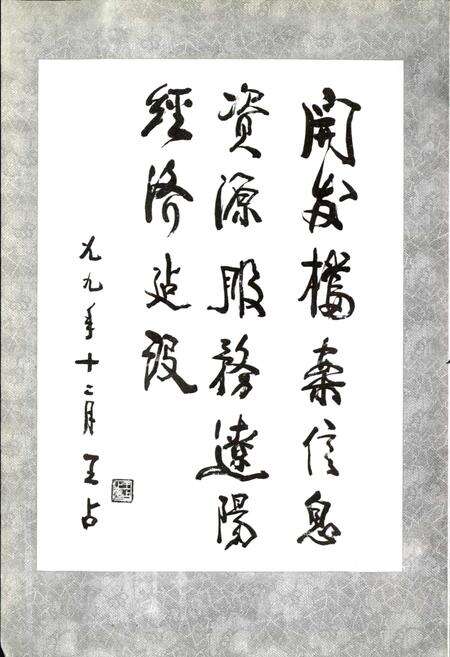 開发檔案信息
資源服務遼陽
經济建设
九九年十二月 王占